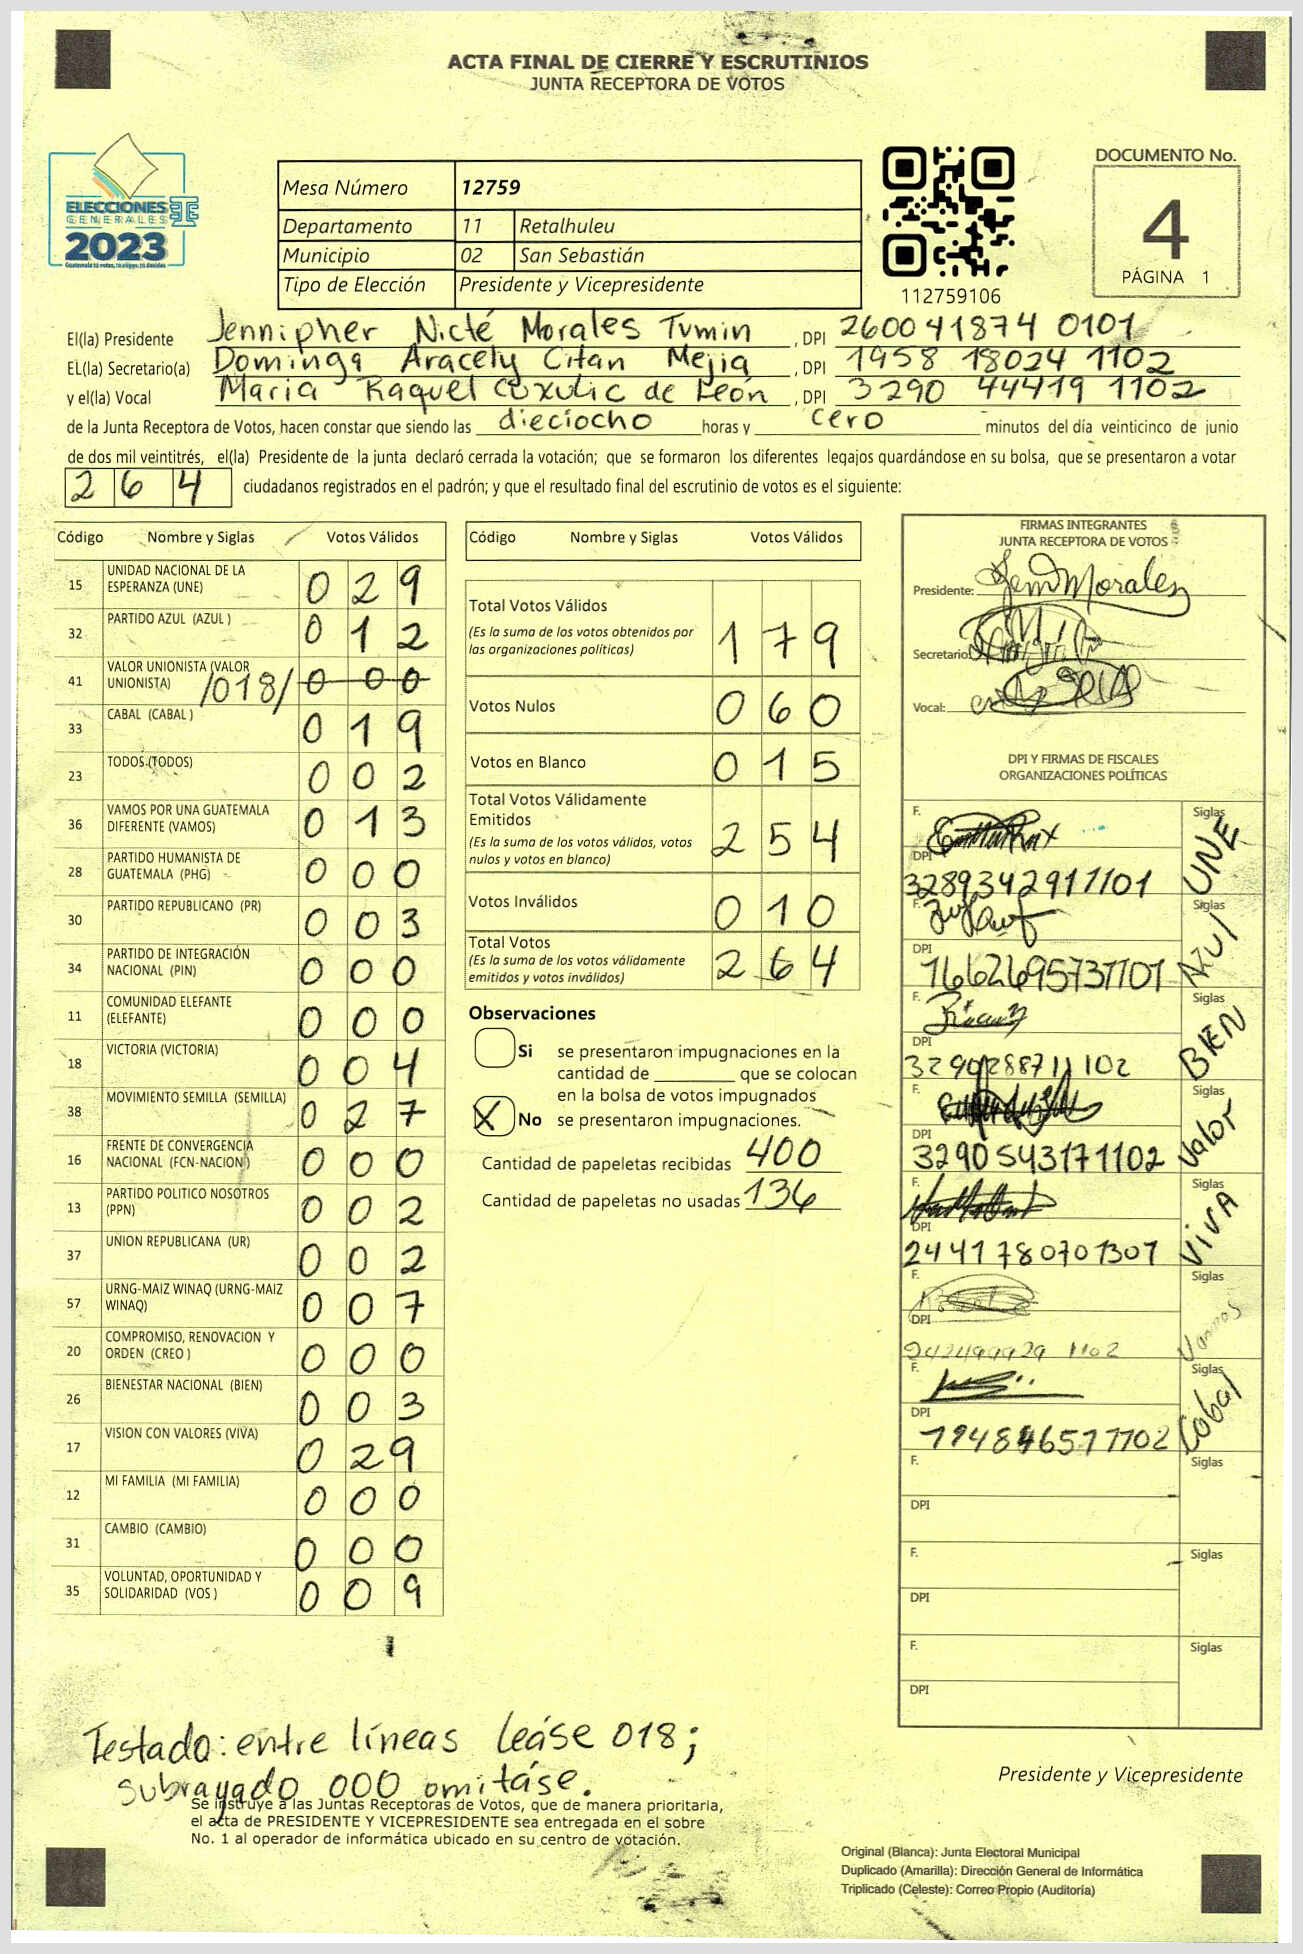 ACTA FINAL DE CIERRE Y ESCRUTINIOS
JUNTA RECEPTORA DE VOTOS
ELECCIONES
GENERALES
2023
Mesa Número 12759
Departamento 11 Retalhuleu
Municipio 02 San Sebastián
Tipo de Elección Presidente y Vicepresidente
112759106
DOCUMENTO No.
4
PÁGINA 1
El(la) Presidente Jennipher Nicté Morales Tumin, DPI 260041874 0101
EL(la) Secretario(a) Dominga Aracely Citan Mejia, DPI 1958 18024 1102
y el(la) Vocal Maria Raquel Cuxulic de León, DPI 3290 44419 1102
de la Junta Receptora de Votos, hacen constar que siendo las dieciocho horas y cero minutos del día veinticinco de junio
de dos mil veintitrés, el(la) Presidente de la junta declaró cerrada la votación; que se formaron los diferentes legajos guardándose en su bolsa, que se presentaron a votar
264 ciudadanos registrados en el padrón; y que el resultado final del escrutinio de votos es el siguiente:
Código Nombre y Siglas Votos Válidos
15 UNIDAD NACIONAL DE LA ESPERANZA (UNE) 029
32 PARTIDO AZUL (AZUL ) 012
41 VALOR UNIONISTA (VALOR UNIONISTA) /018/ 000
33 CABAL (CABAL ) 019
23 TODOS (TODOS) 002
36 VAMOS POR UNA GUATEMALA DIFERENTE (VAMOS) 013
28 PARTIDO HUMANISTA DE GUATEMALA (PHG) 000
30 PARTIDO REPUBLICANO (PR) 003
34 PARTIDO DE INTEGRACIÓN NACIONAL (PIN) 000
11 COMUNIDAD ELEFANTE (ELEFANTE) 000
18 VICTORIA (VICTORIA) 004
38 MOVIMIENTO SEMILLA (SEMILLA) 027
16 FRENTE DE CONVERGENCIA NACIONAL (FCN-NACION) 000
13 PARTIDO POLITICO NOSOTROS (PPN) 002
37 UNION REPUBLICANA (UR) 002
57 URNG-MAIZ WINAQ (URNG-MAIZ WINAQ) 007
20 COMPROMISO, RENOVACION Y ORDEN (CREO ) 000
26 BIENESTAR NACIONAL (BIEN) 003
17 VISION CON VALORES (VIVA) 029
12 MI FAMILIA (MI FAMILIA) 000
31 CAMBIO (CAMBIO) 000
35 VOLUNTAD, OPORTUNIDAD Y SOLIDARIDAD (VOS ) 009
Código Nombre y Siglas Votos Válidos
Total Votos Válidos 179
(Es la suma de los votos obtenidos por
las organizaciones políticas)
Votos Nulos 060
Votos en Blanco 015
Total Votos Válidamente
Emitidos 254
(Es la suma de los votos válidos, votos
nulos y votos en blanco)
Votos Inválidos 010
Total Votos 264
(Es la suma de los votos válidamente
emitidos y votos inválidos)
Observaciones
Si se presentaron impugnaciones en la
cantidad de ________ que se colocan
en la bolsa de votos impugnados
X No se presentaron impugnaciones.
Cantidad de papeletas recibidas 400
Cantidad de papeletas no usadas 136
FIRMAS INTEGRANTES
JUNTA RECEPTORA DE VOTOS
Presidente: Jenn Morales
Secretario:
Vocal:
DPI Y FIRMAS DE FISCALES
ORGANIZACIONES POLÍTICAS
F. Siglas UNE
DPI 3289342911101
F. Siglas Azul
DPI 1662695731101
F. Siglas BIEN
DPI 3290288711102
F. Siglas Valor
DPI 3290543171102
F. Siglas VIVA
DPI 2441780701301
F. Siglas Vamos
DPI
F. Siglas Cabal
DPI
F. Siglas
DPI
F. Siglas
DPI
F. Siglas
DPI
Testado: entre líneas leáse 018;
subrayado 000 omitáse.
Se instruye a las Juntas Receptoras de Votos, que de manera prioritaria,
el acta de PRESIDENTE Y VICEPRESIDENTE sea entregada en el sobre
No. 1 al operador de informática ubicado en su centro de votación.
Presidente y Vicepresidente
Original (Blanca): Junta Electoral Municipal
Duplicado (Amarilla): Dirección General de Informática
Triplicado (Celeste): Correo Propio (Auditoría)